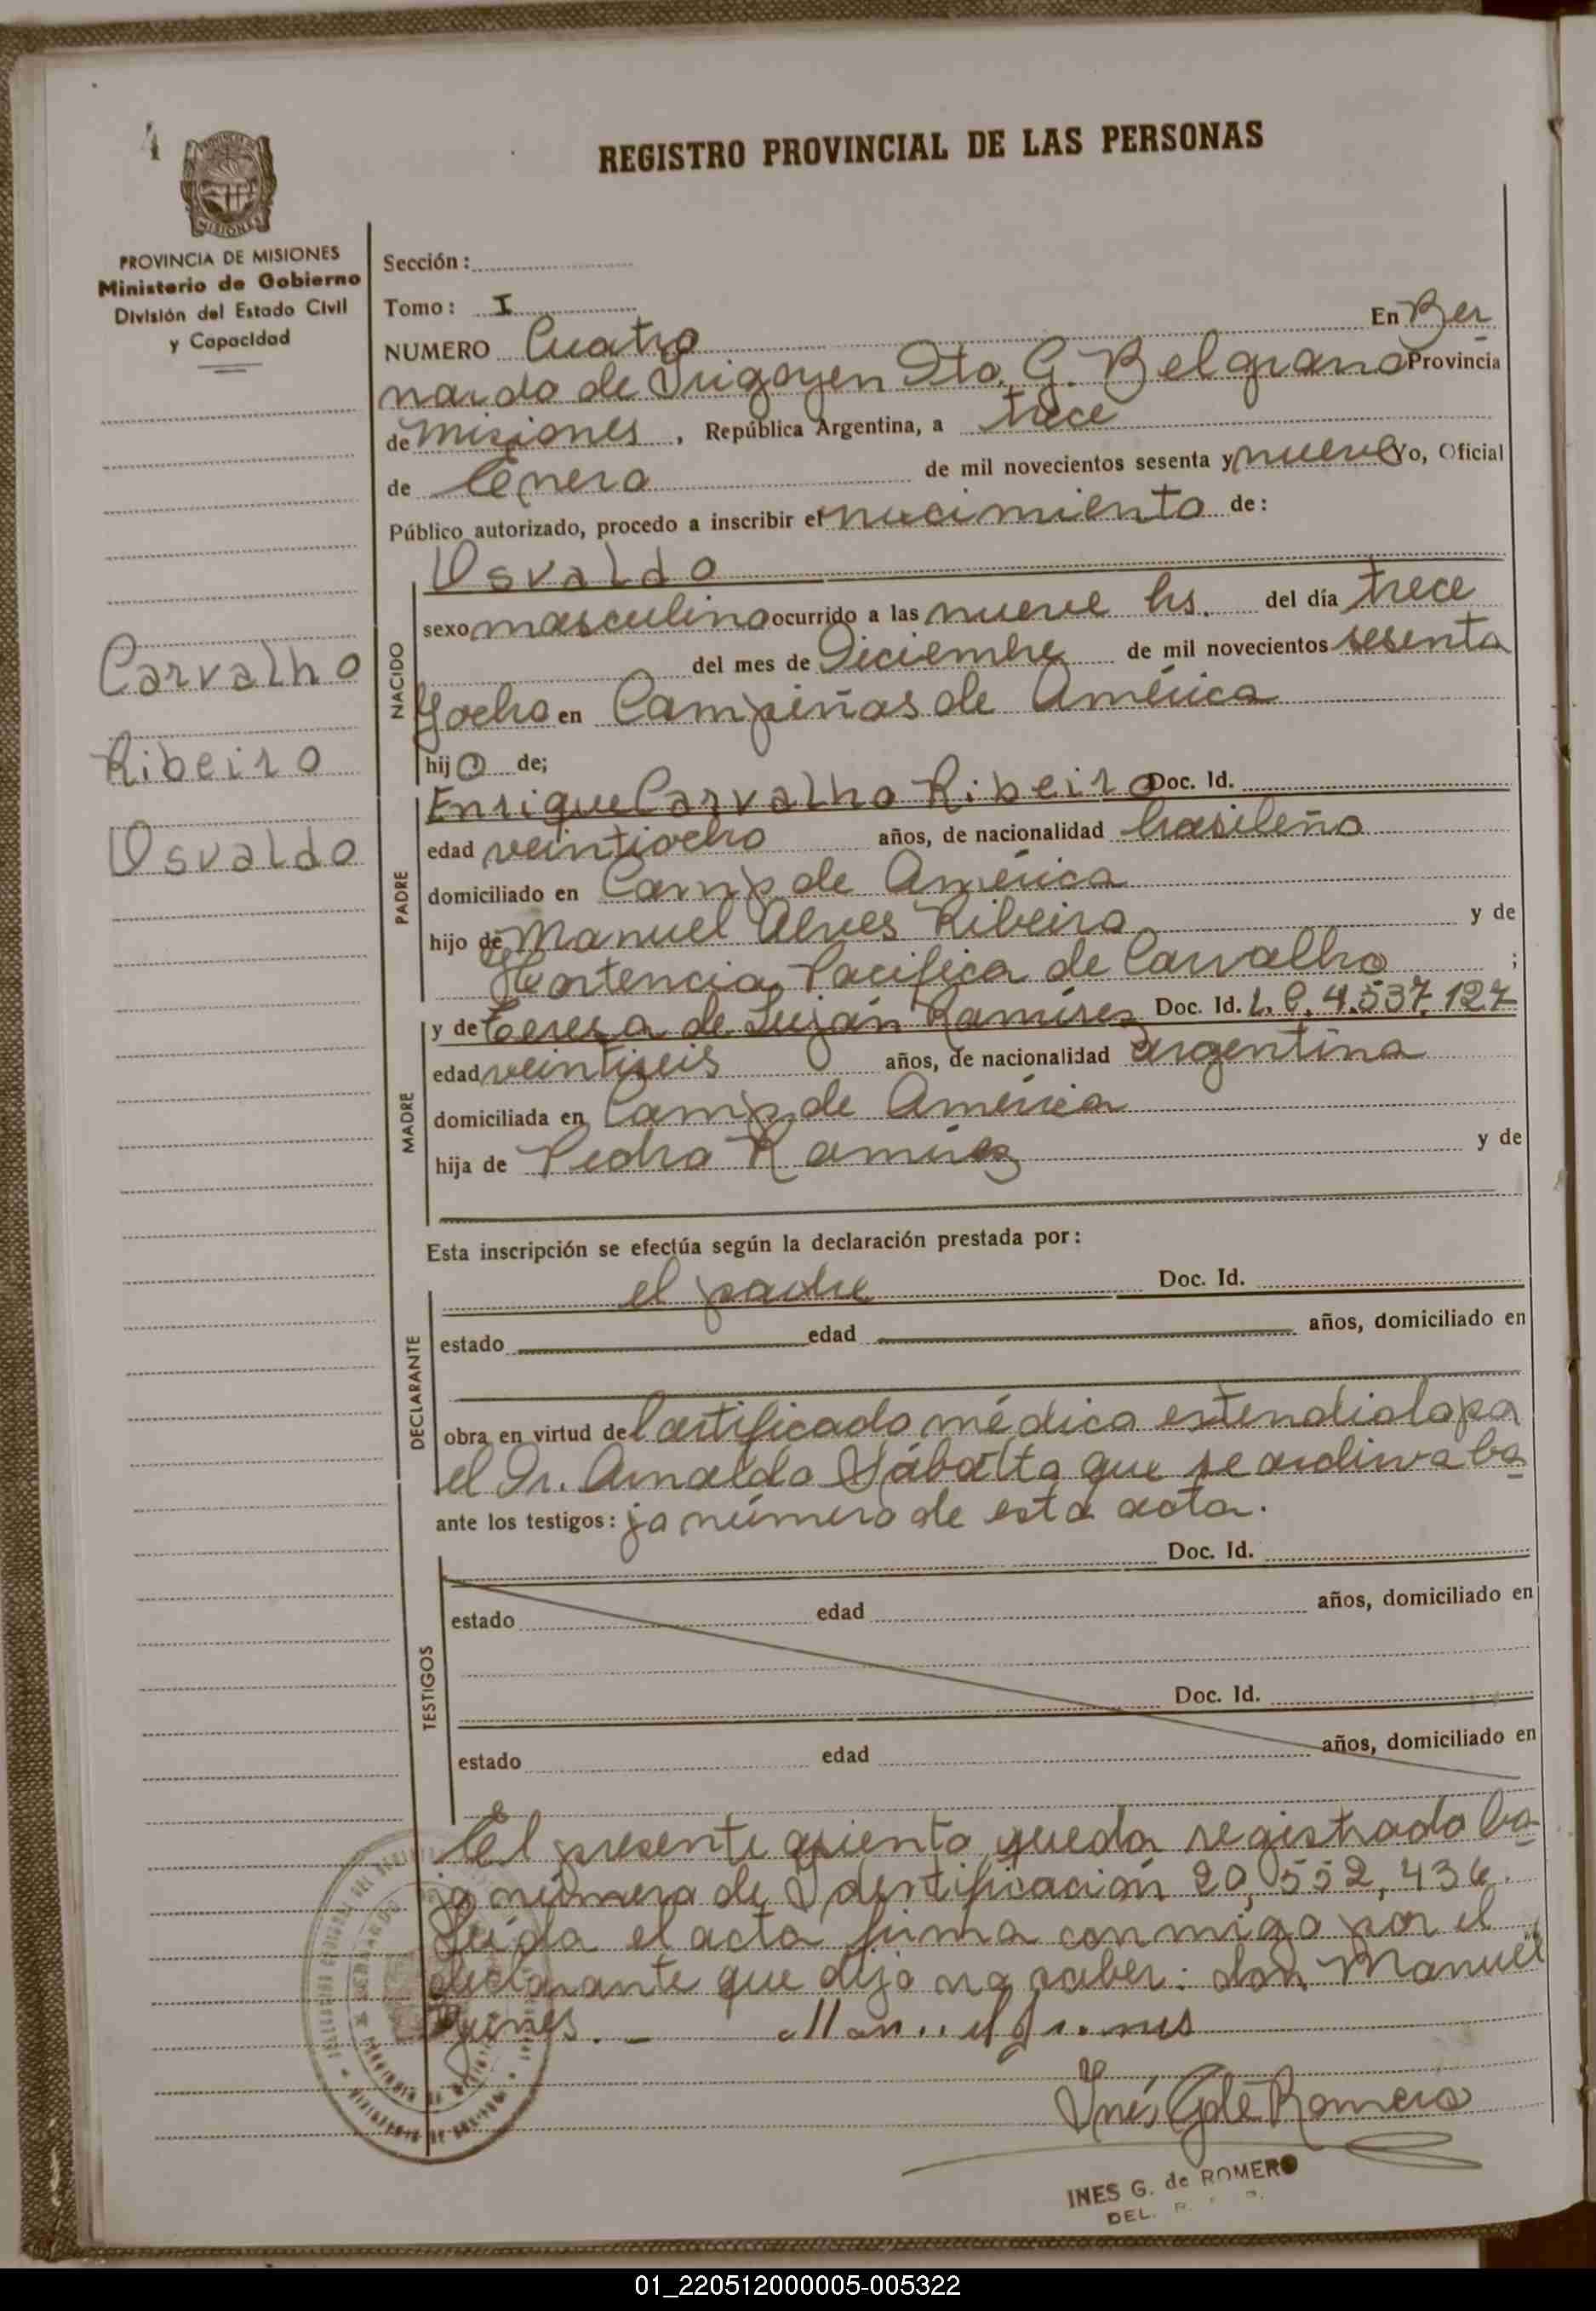 4
REGISTRO PROVINCIAL DE LAS PERSONAS
MISIONES
PROVINCIA DE MISIONES
Ministerio de Gobierno
División del Estado Civil
y Capacidad
Carvalho
Ribeiro
Osvaldo
Sección:
Tomo: I
NUMERO Cuatro En Ber
nardo de Irigoyen Dto. G. Belgrano Provincia
de Misiones, República Argentina, a trece
de Enero de mil novecientos sesenta y nueve Yo, Oficial
Público autorizado, procedo a inscribir el nacimiento de:
Osvaldo
NACIDO
sexo masculino ocurrido a las nueve hs. del día trece
del mes de Diciembre de mil novecientos sesenta
y ocho en Campiñas de América
hijo de;
PADRE
Enrique Carvalho Ribeiro Doc. Id.
edad veintiocho años, de nacionalidad brasileño
domiciliado en Camp. de América
hijo de Manuel Alves Ribeiro y de
Hortencia Pacifica de Carvalho ;
MADRE
y de Teresa de Luján Ramírez Doc. Id. L. C. 4.537.127
edad veintiseis años, de nacionalidad argentina
domiciliada en Camp. de América
hija de Pedro Ramírez y de
Esta inscripción se efectúa según la declaración prestada por:
DECLARANTE
el padre Doc. Id.
estado edad años, domiciliado en
obra en virtud de Certificado médico extendido por
el Dr. Arnaldo Sábatto que se archiva ba
ante los testigos: jo número de esta acta.
TESTIGOS
Doc. Id.
estado edad años, domiciliado en
Doc. Id.
estado edad años, domiciliado en
El presente asiento queda registrado ba
jo número de Identificación 20,552,436.
Leída el acta firma conmigo por el
declarante que dijo no saber: don Manuel
Inés G. de Romero
INES G. de ROMERO
DEL.
01_220512000005-005322